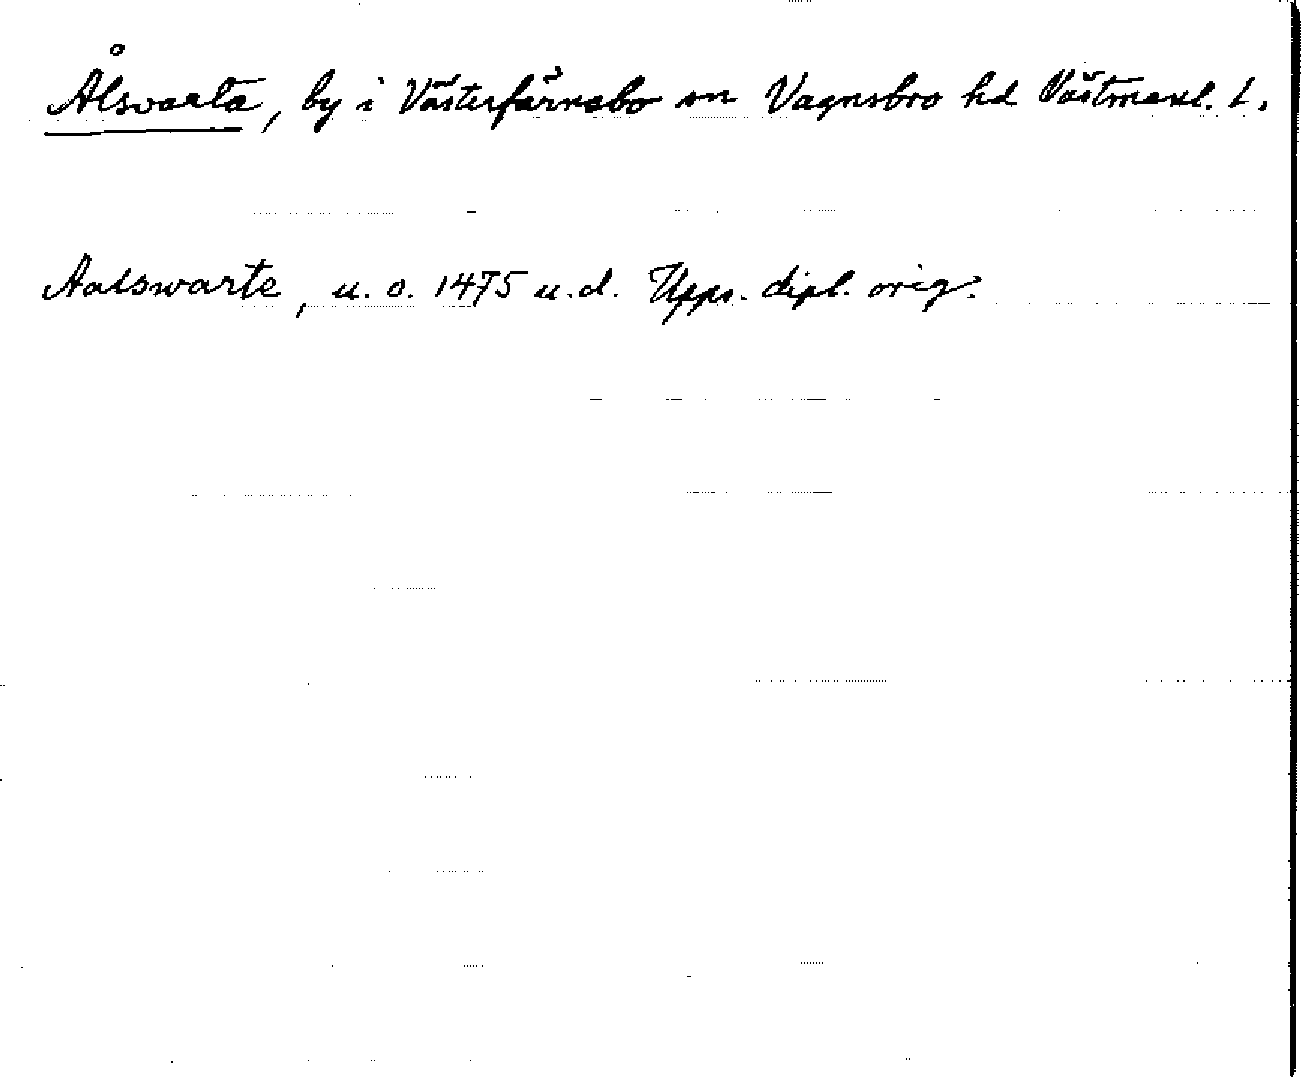 Ålsvarta, by i Västerfärnebo sn Vagnsbro hd Västmanl. l.
Aalswarte, u. o. 1475 u.d. Upps. dipl. orig.